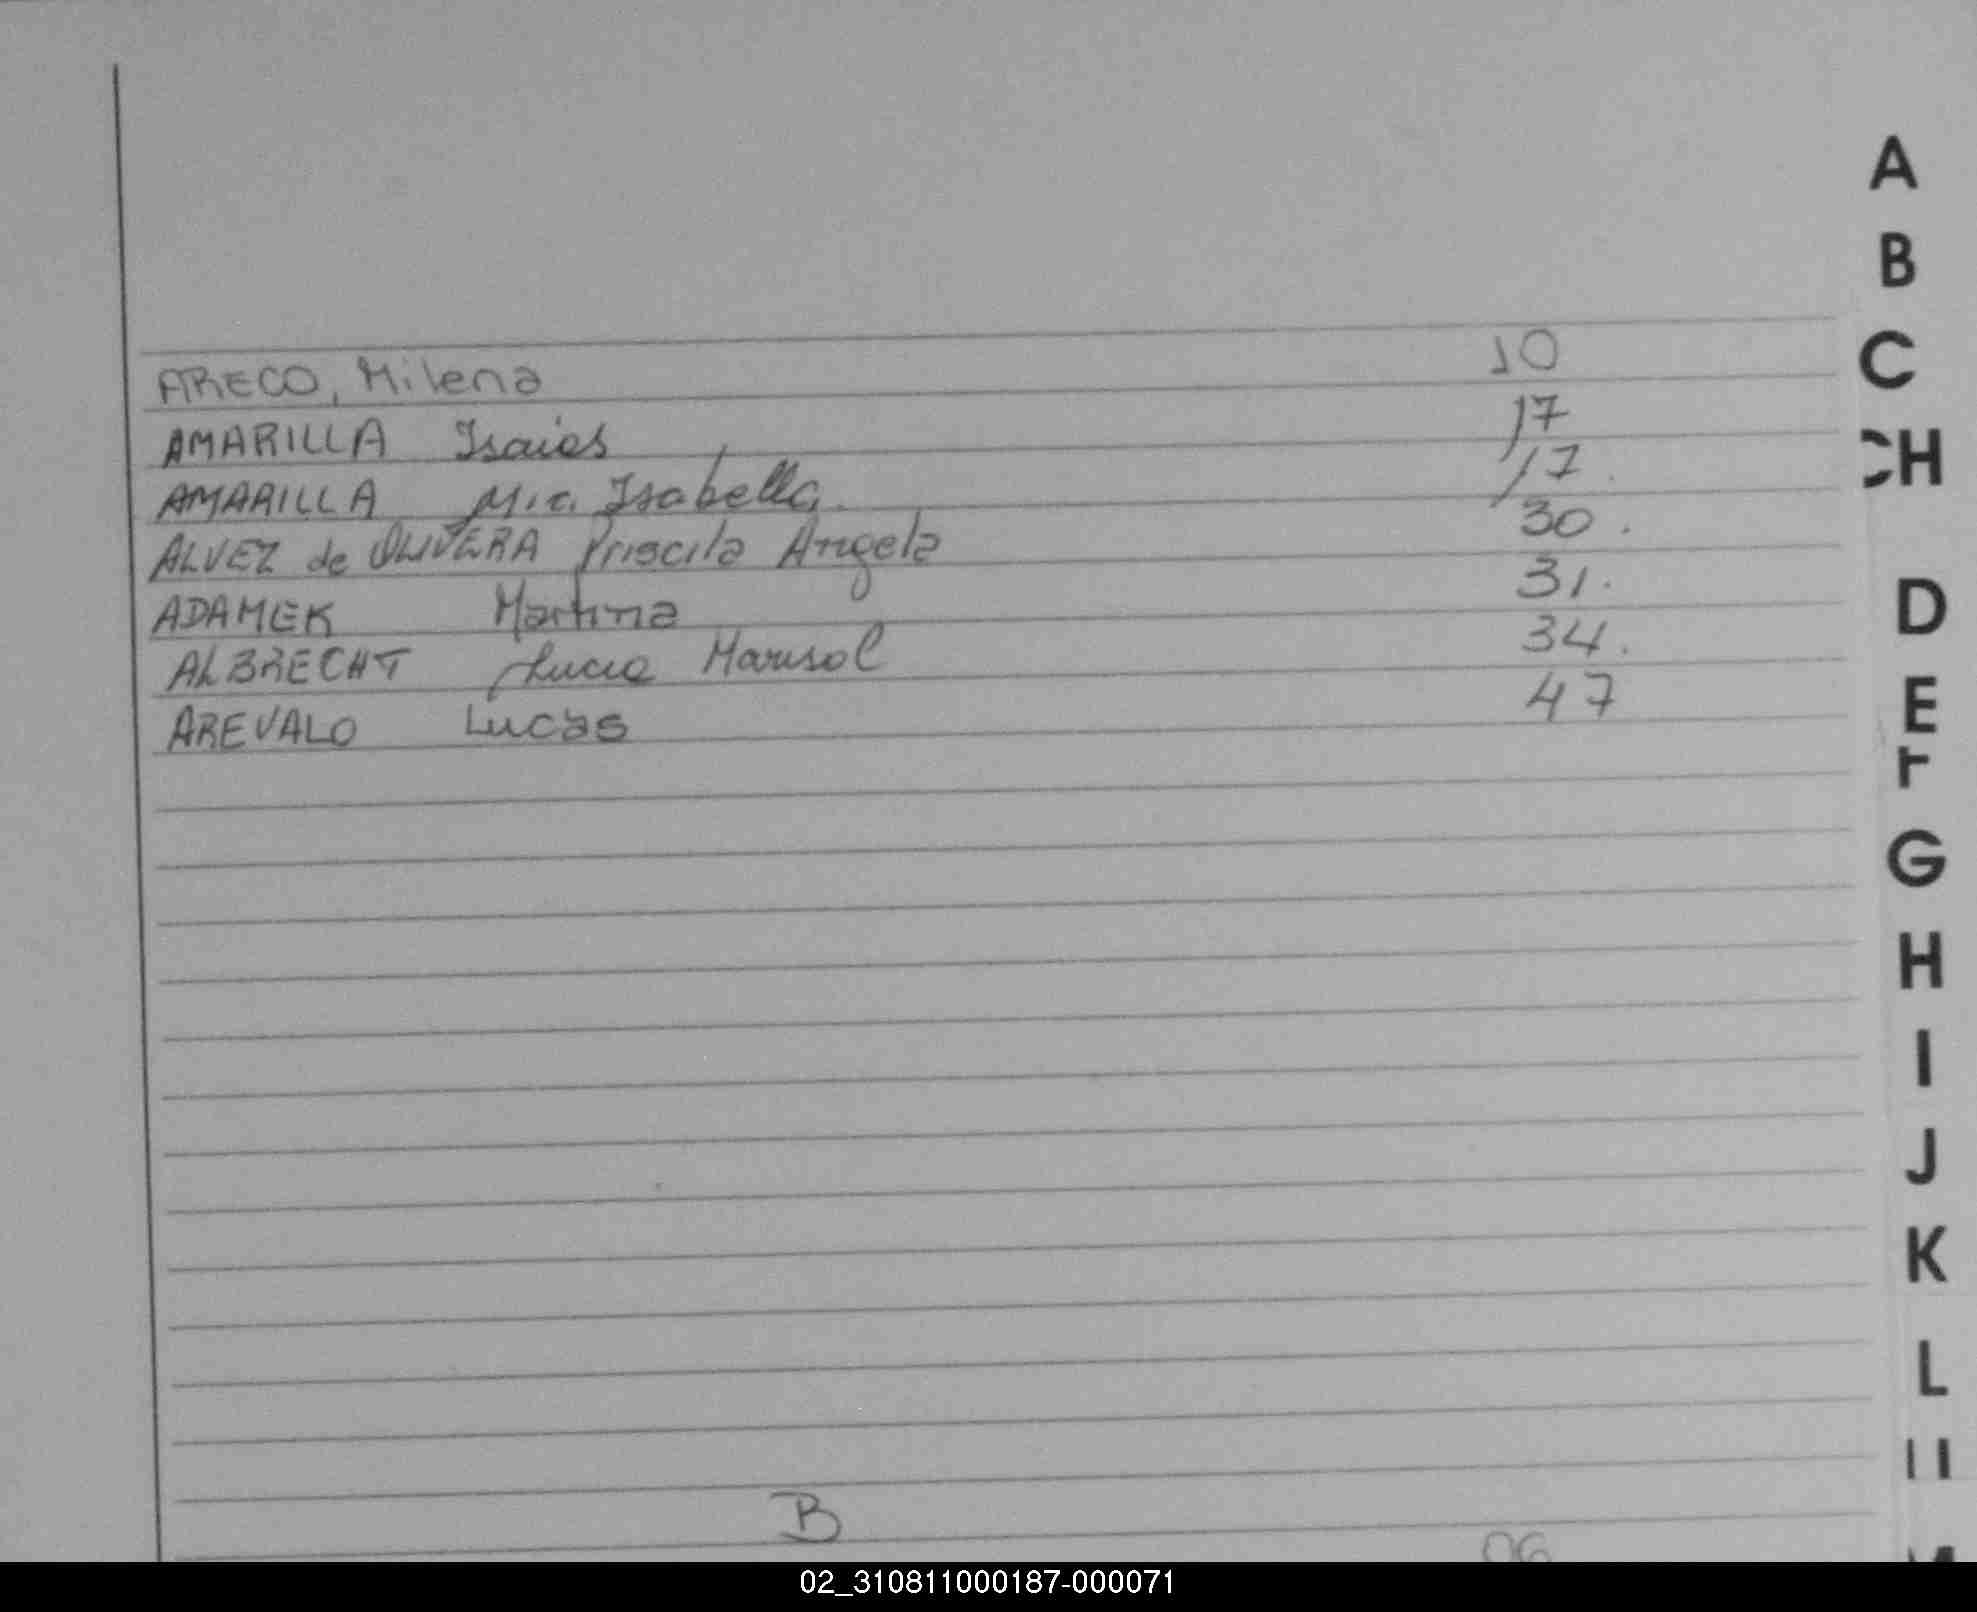 ARECO, Milena 10
AMARILLA Isaias 17
AMARILLA Mía Isabella. 17.
ALVEZ de OLIVERA Priscila Angela 30.
ADAMEK Martina 31.
ALBRECHT Lucia Marisol 34.
AREVALO Lucas 47
B
06
A
B
C
CH
D
E
F
G
H
I
J
K
L
02_310811000187-000071